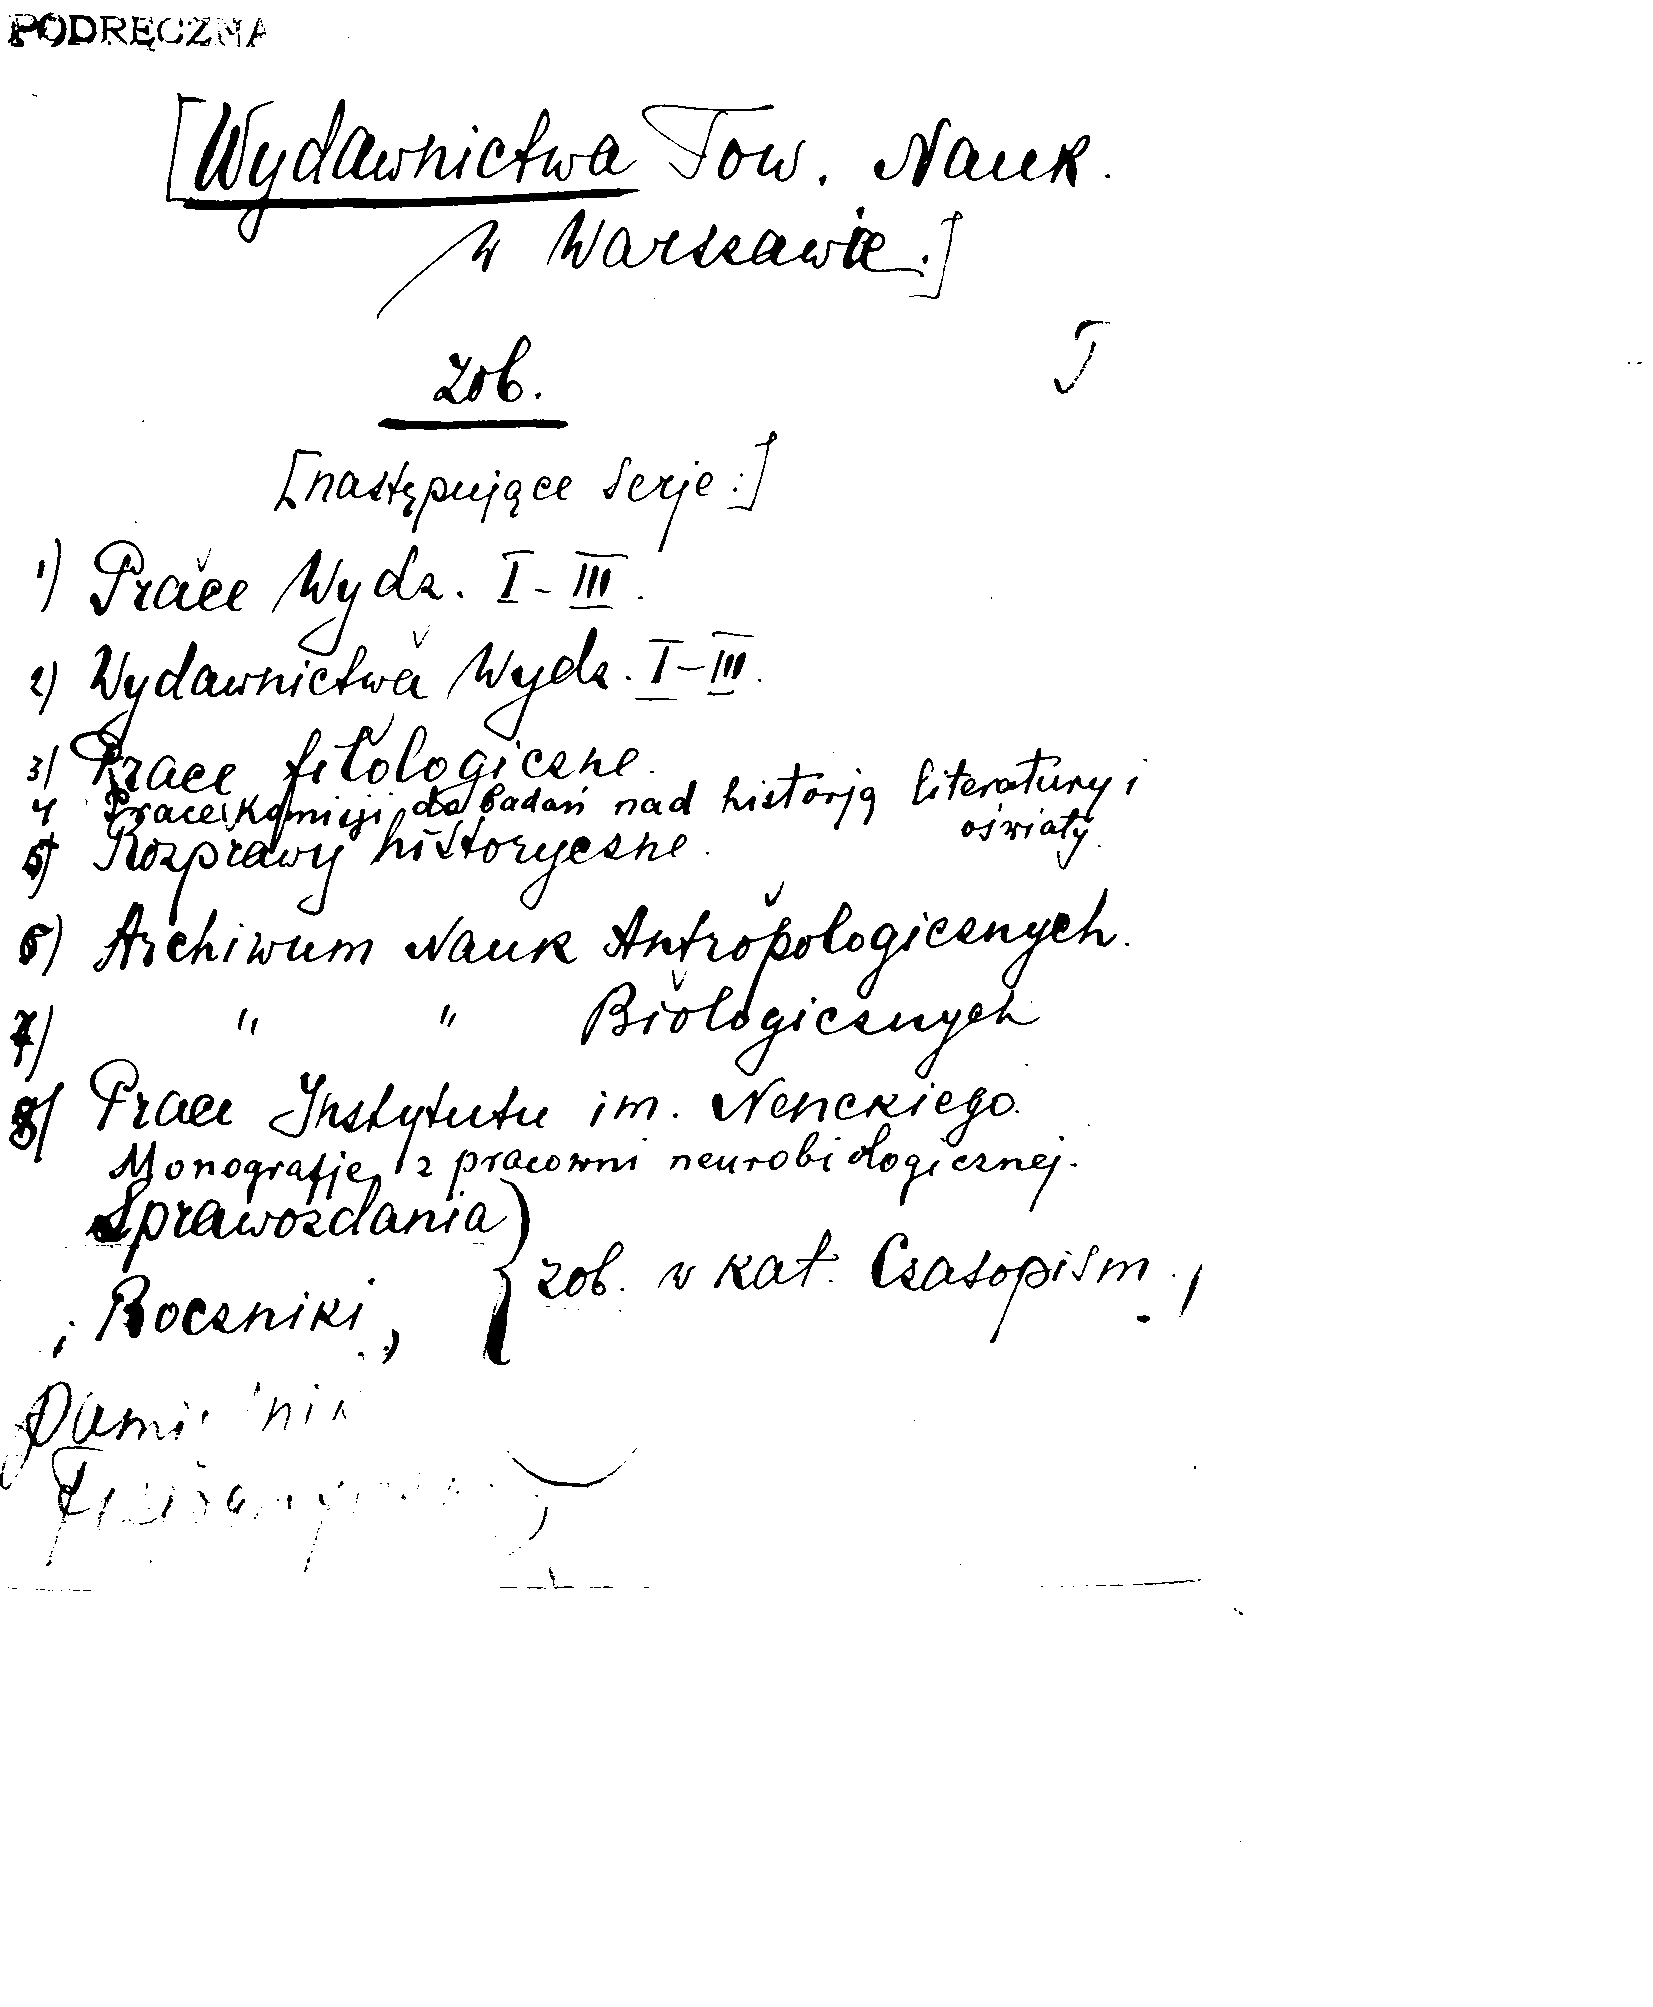 PODRĘCZNA
[Wydawnictwa Tow. Nauk.
w Warszawie.]
zob.
[następujące serje:]
1) Prace Wydz. I-III.
2) Wydawnictwa Wydz. I-III.
3) Prace filologiczne.
4 Prace Komisji do badań nad historją literatury i
oświaty.
5) Rozprawy historyczne.
6) Archiwum Nauk Antropologicznych.
7) " " Biologicznych
8) Prace Instytutu im. Nenckiego.
Monografje z pracowni neurobiologicznej.
Sprawozdania
i Roczniki, } zob. w kat. Czasopism.,